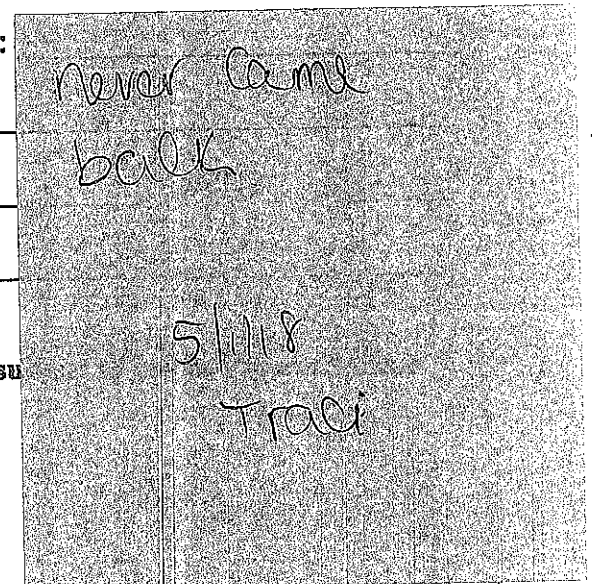 :
never came
back
5/1/18
su
Traci